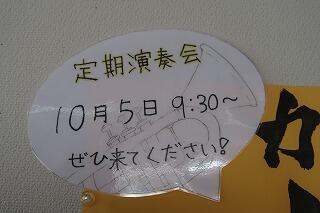 定期演奏会
10月5日 9:30~
ぜひ来てください!